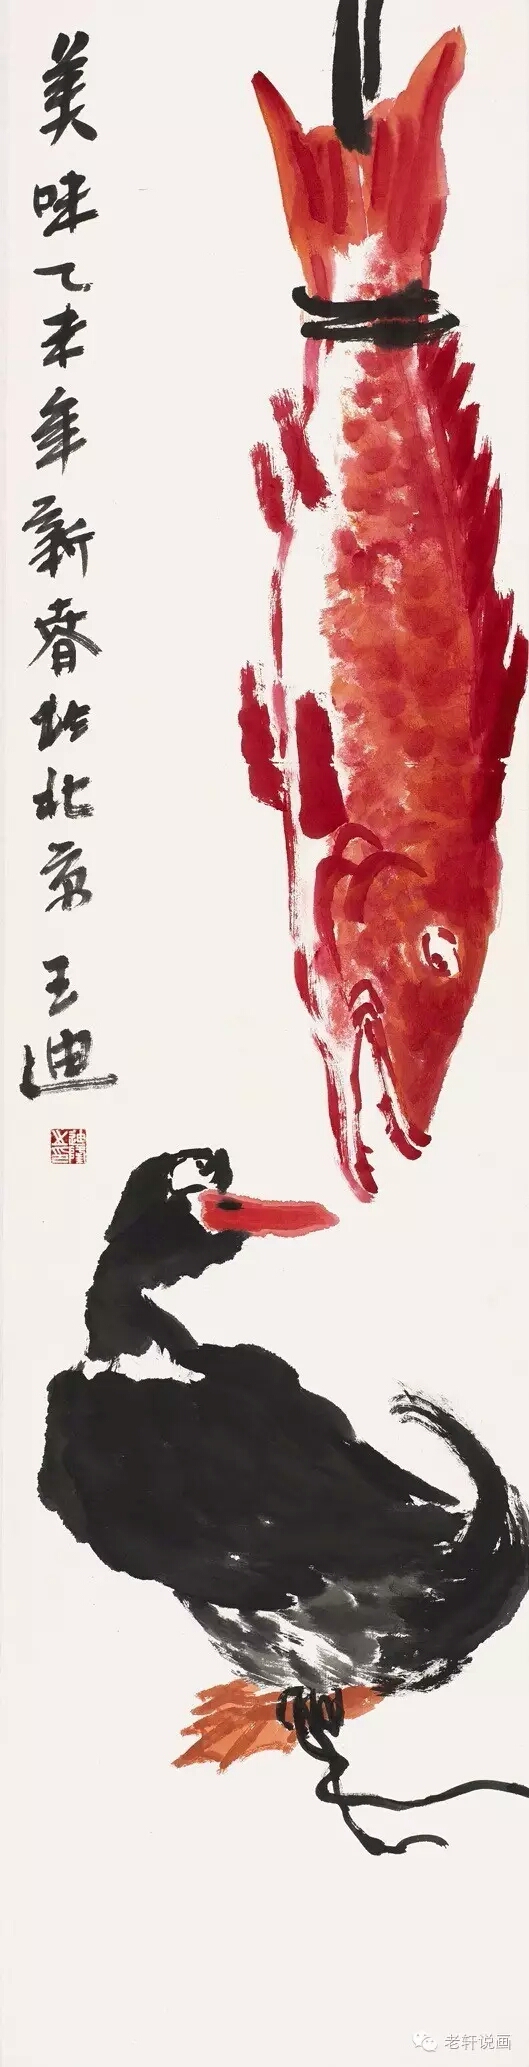 美味乙未年新春於北京王迪
老轩说画